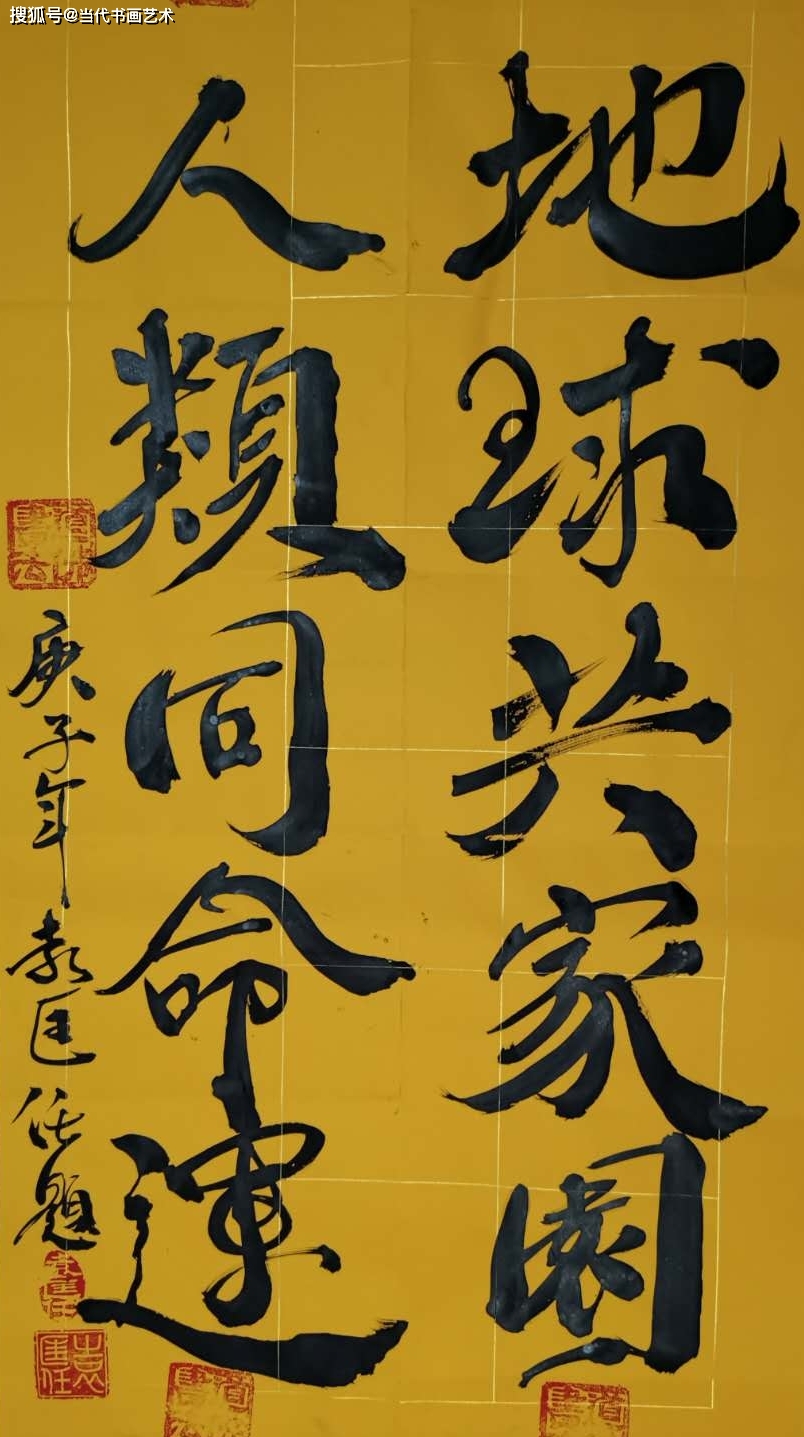 搜狐号@当代书画艺术
地球共家園
人類同命運
庚子年袁匡任題
袁匡任